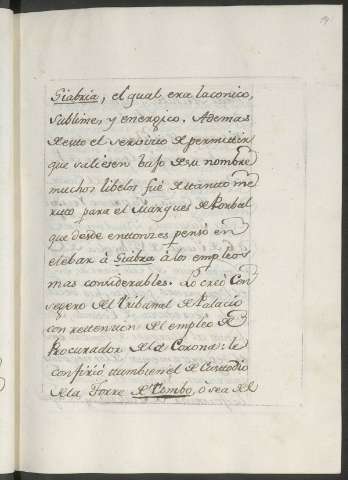 Siabria, el qual era laconico,
sublime, y energico. Ademas
de esto el servicio de permitir
que saliesen bajo de su nombre
muchos libelos fué de tanto me
rito para el Marques de Pombal
que desde enttonzes pensó en
elebar à Siabra à los empleos
mas considerables. Lo creó Con
segero del Tribunal de Palacio
con rettencion del empleo de
Procurador de la Corona: le
confirió tambien el de Custodio
de la Torre de Tombo, ò sea del